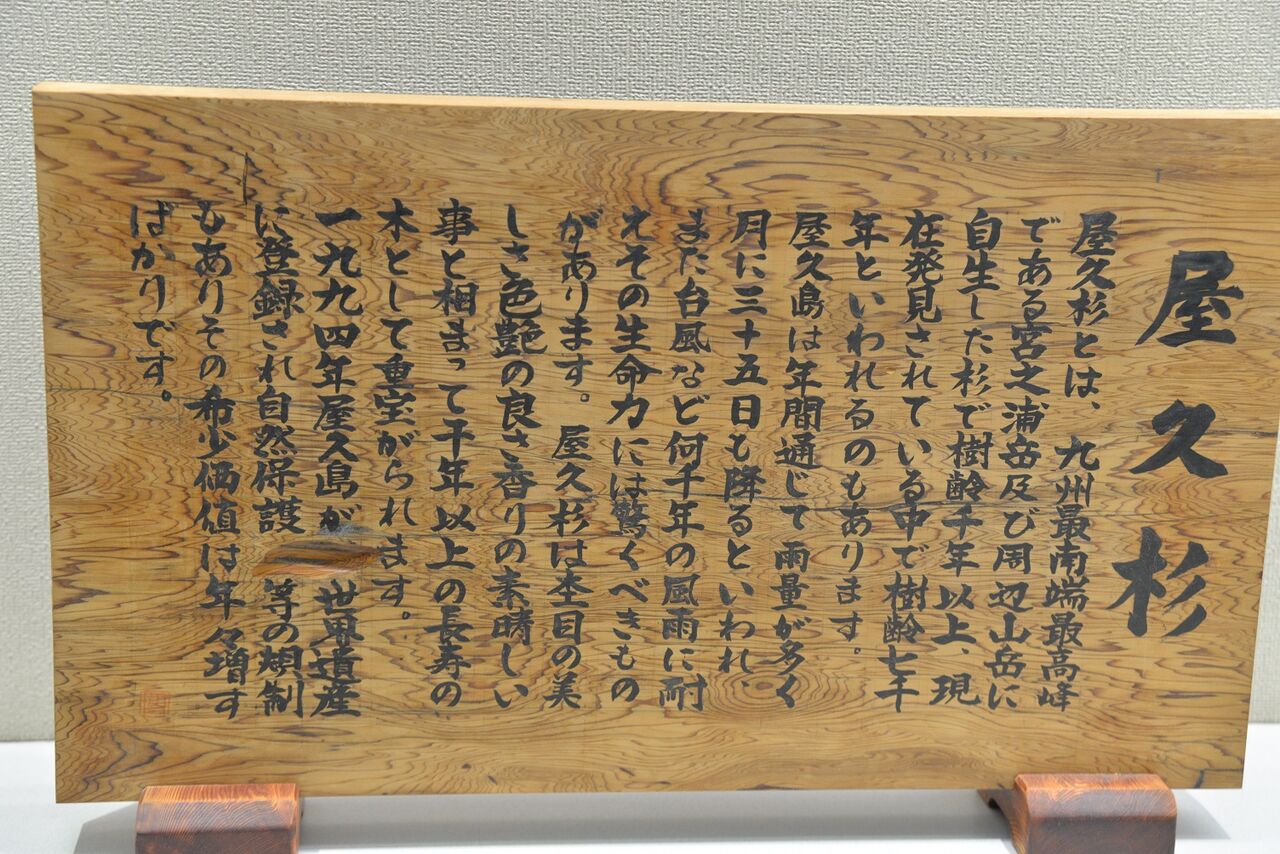 屋久杉
屋久杉とは、九州最南端最高峰
である宮之浦岳及び周辺山岳に
自生した杉で樹齢千年以上、現
在発見されている中で樹齢七千
年といわれるのもあります。
屋久島は年間通じて雨量が多く
月に三十五日も降るといわれ、
また台風など何千年の風雨に耐
えその生命力には驚くべきもの
があります。 屋久杉は杢目の美
しさ色艶の良さ香りの素晴しい
事と相まって千年以上の長寿の
木として重宝がられます。
一九九四年屋久島が 世界遺産
に登録され自然保護 等の規制
もありその希少価値は年々増す
ばかりです。